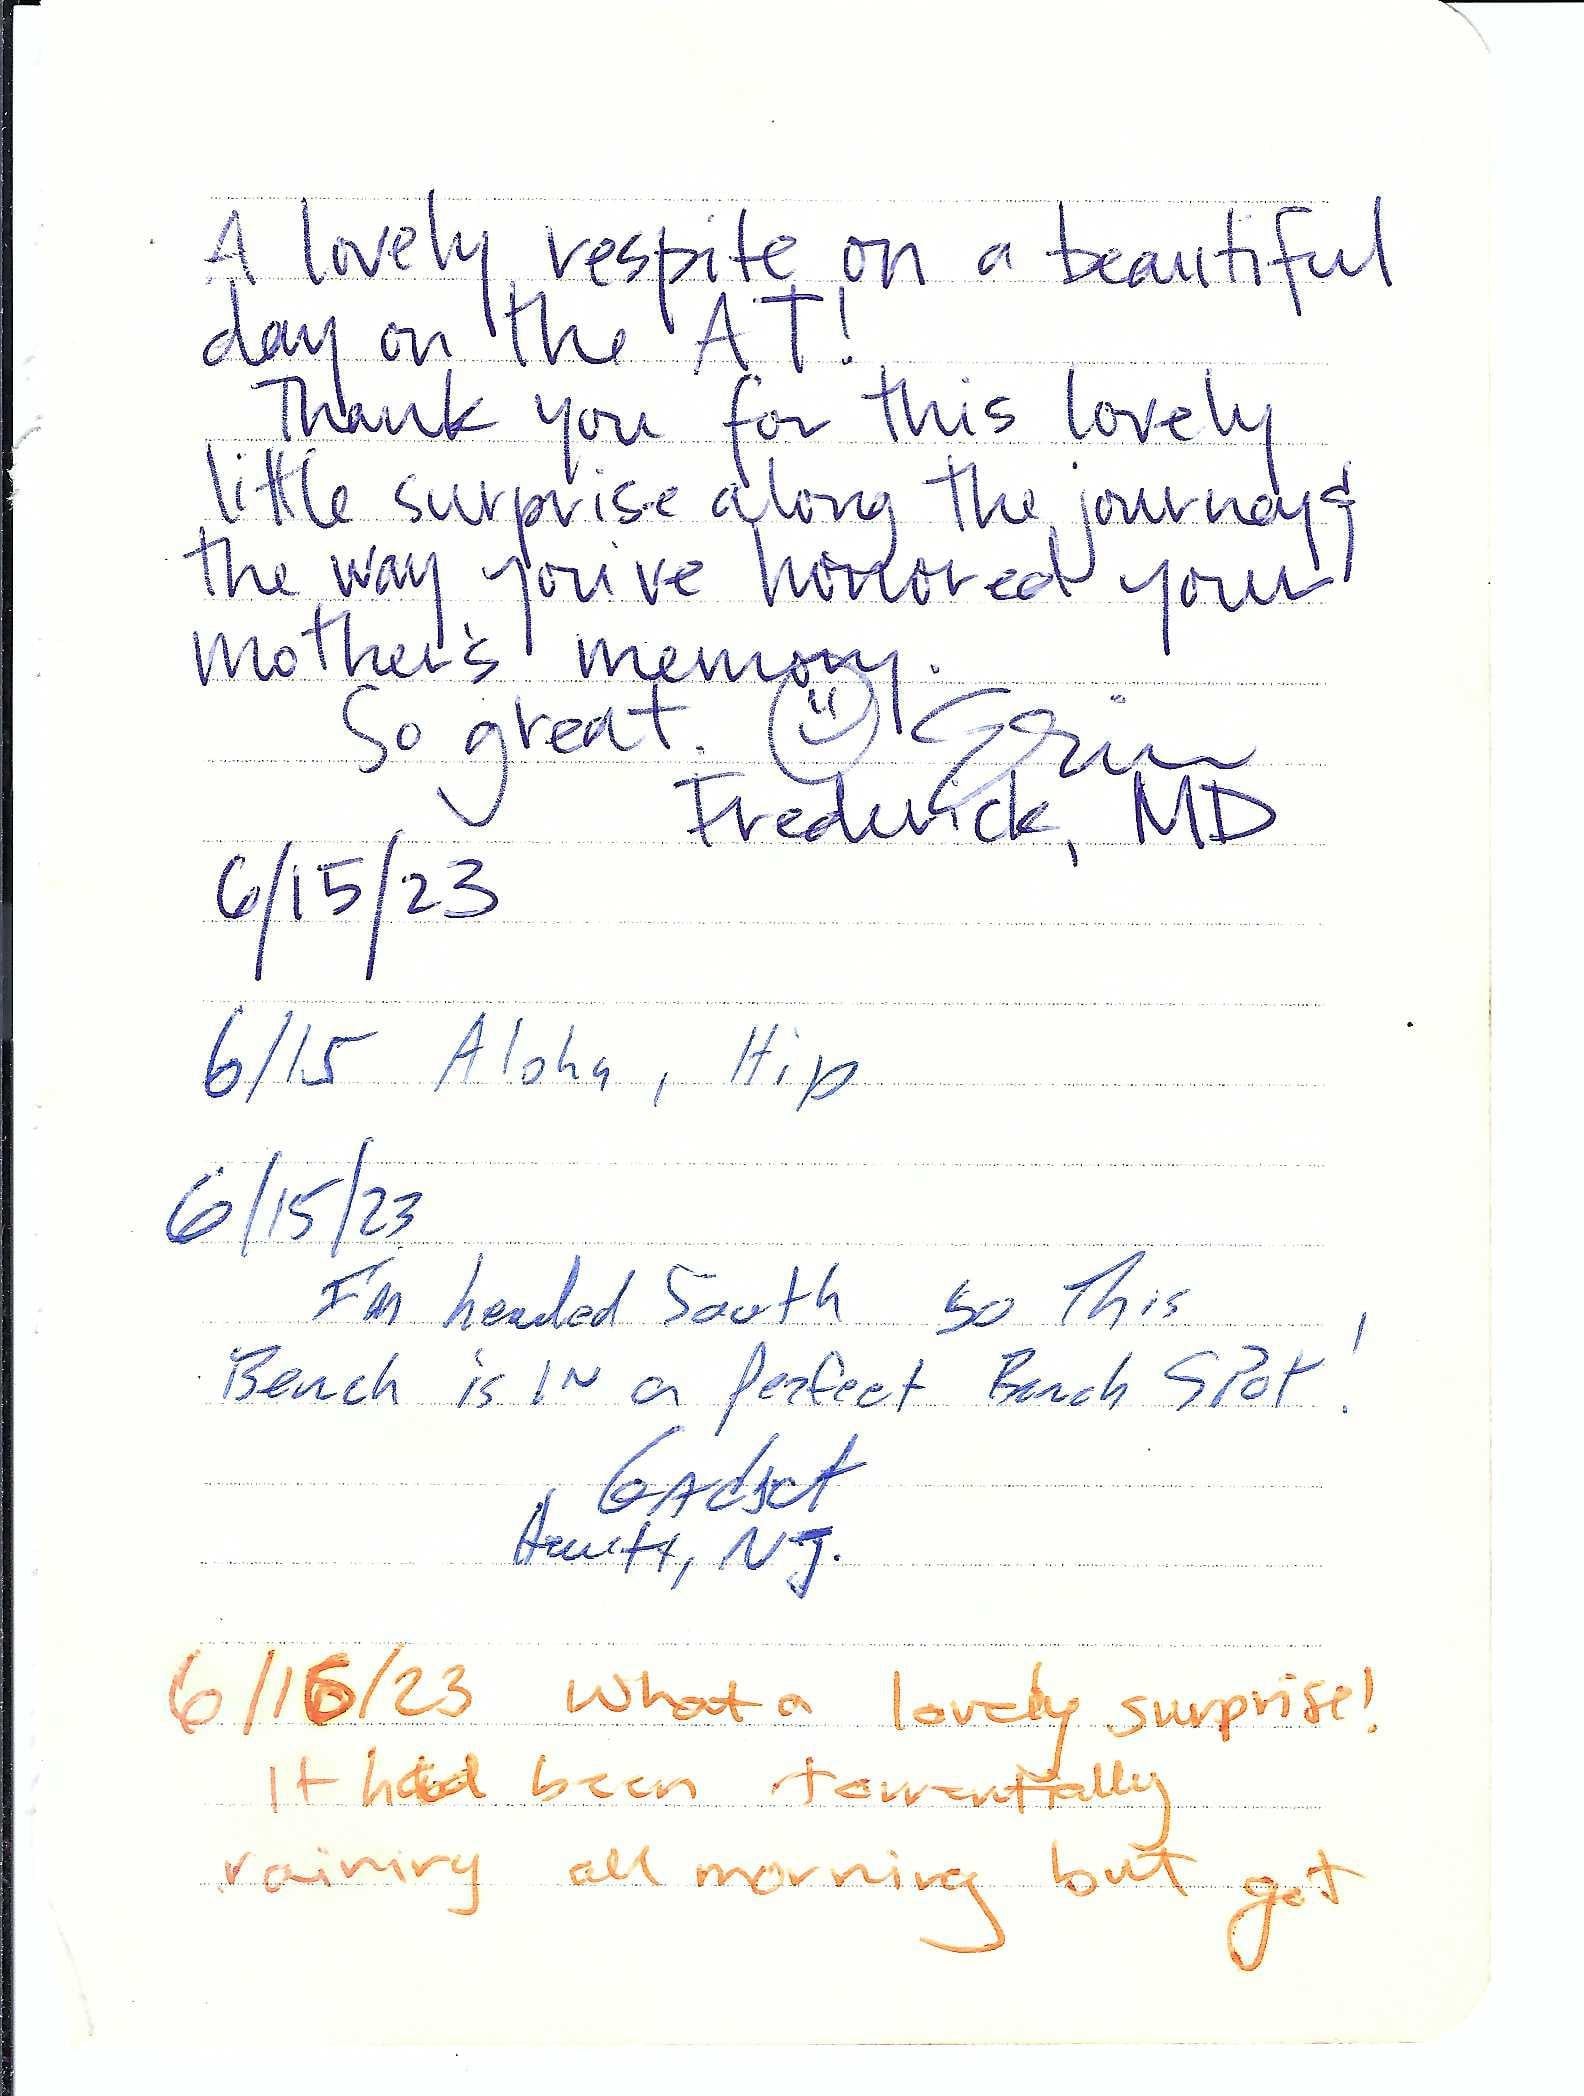 A lovely respite on a beautiful
day on the AT!
Thank you for this lovely
little surprise along the journey &
the way you've honored your
mother's memory.
So great. Erin
Frederick, MD
6/15/23
6/15 Aloha, Hip
6/15/23
I'm headed South so This
Bench is IN a perfect Bench SPot!
GAdget
NJ.
6/16/23 What a lovely surprise!
It had been torrentially
raining all morning but got